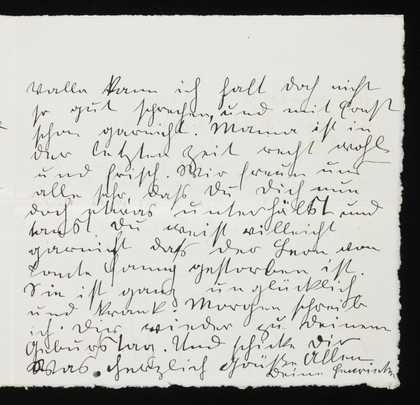 Walla kann ich halt doch nicht
so gut sprechen, und mit Ernst
schon garnicht. Mama ist in
der letzten Zeit recht wohl
und frisch. Wir freuen uns
alle sehr, dass Du Dich nun
doch etwas unterhältst und
tanst. Du weist villeicht
garnicht dass der Leon von
Tante Fanny gestorben ist.
Sie ist ganz unglücklich
und krank. Morgen schreib
ich Dir wieder zu Deinem
Geburstag. Und schicke Dir
was. Herzlich Grüße Allen
Deine